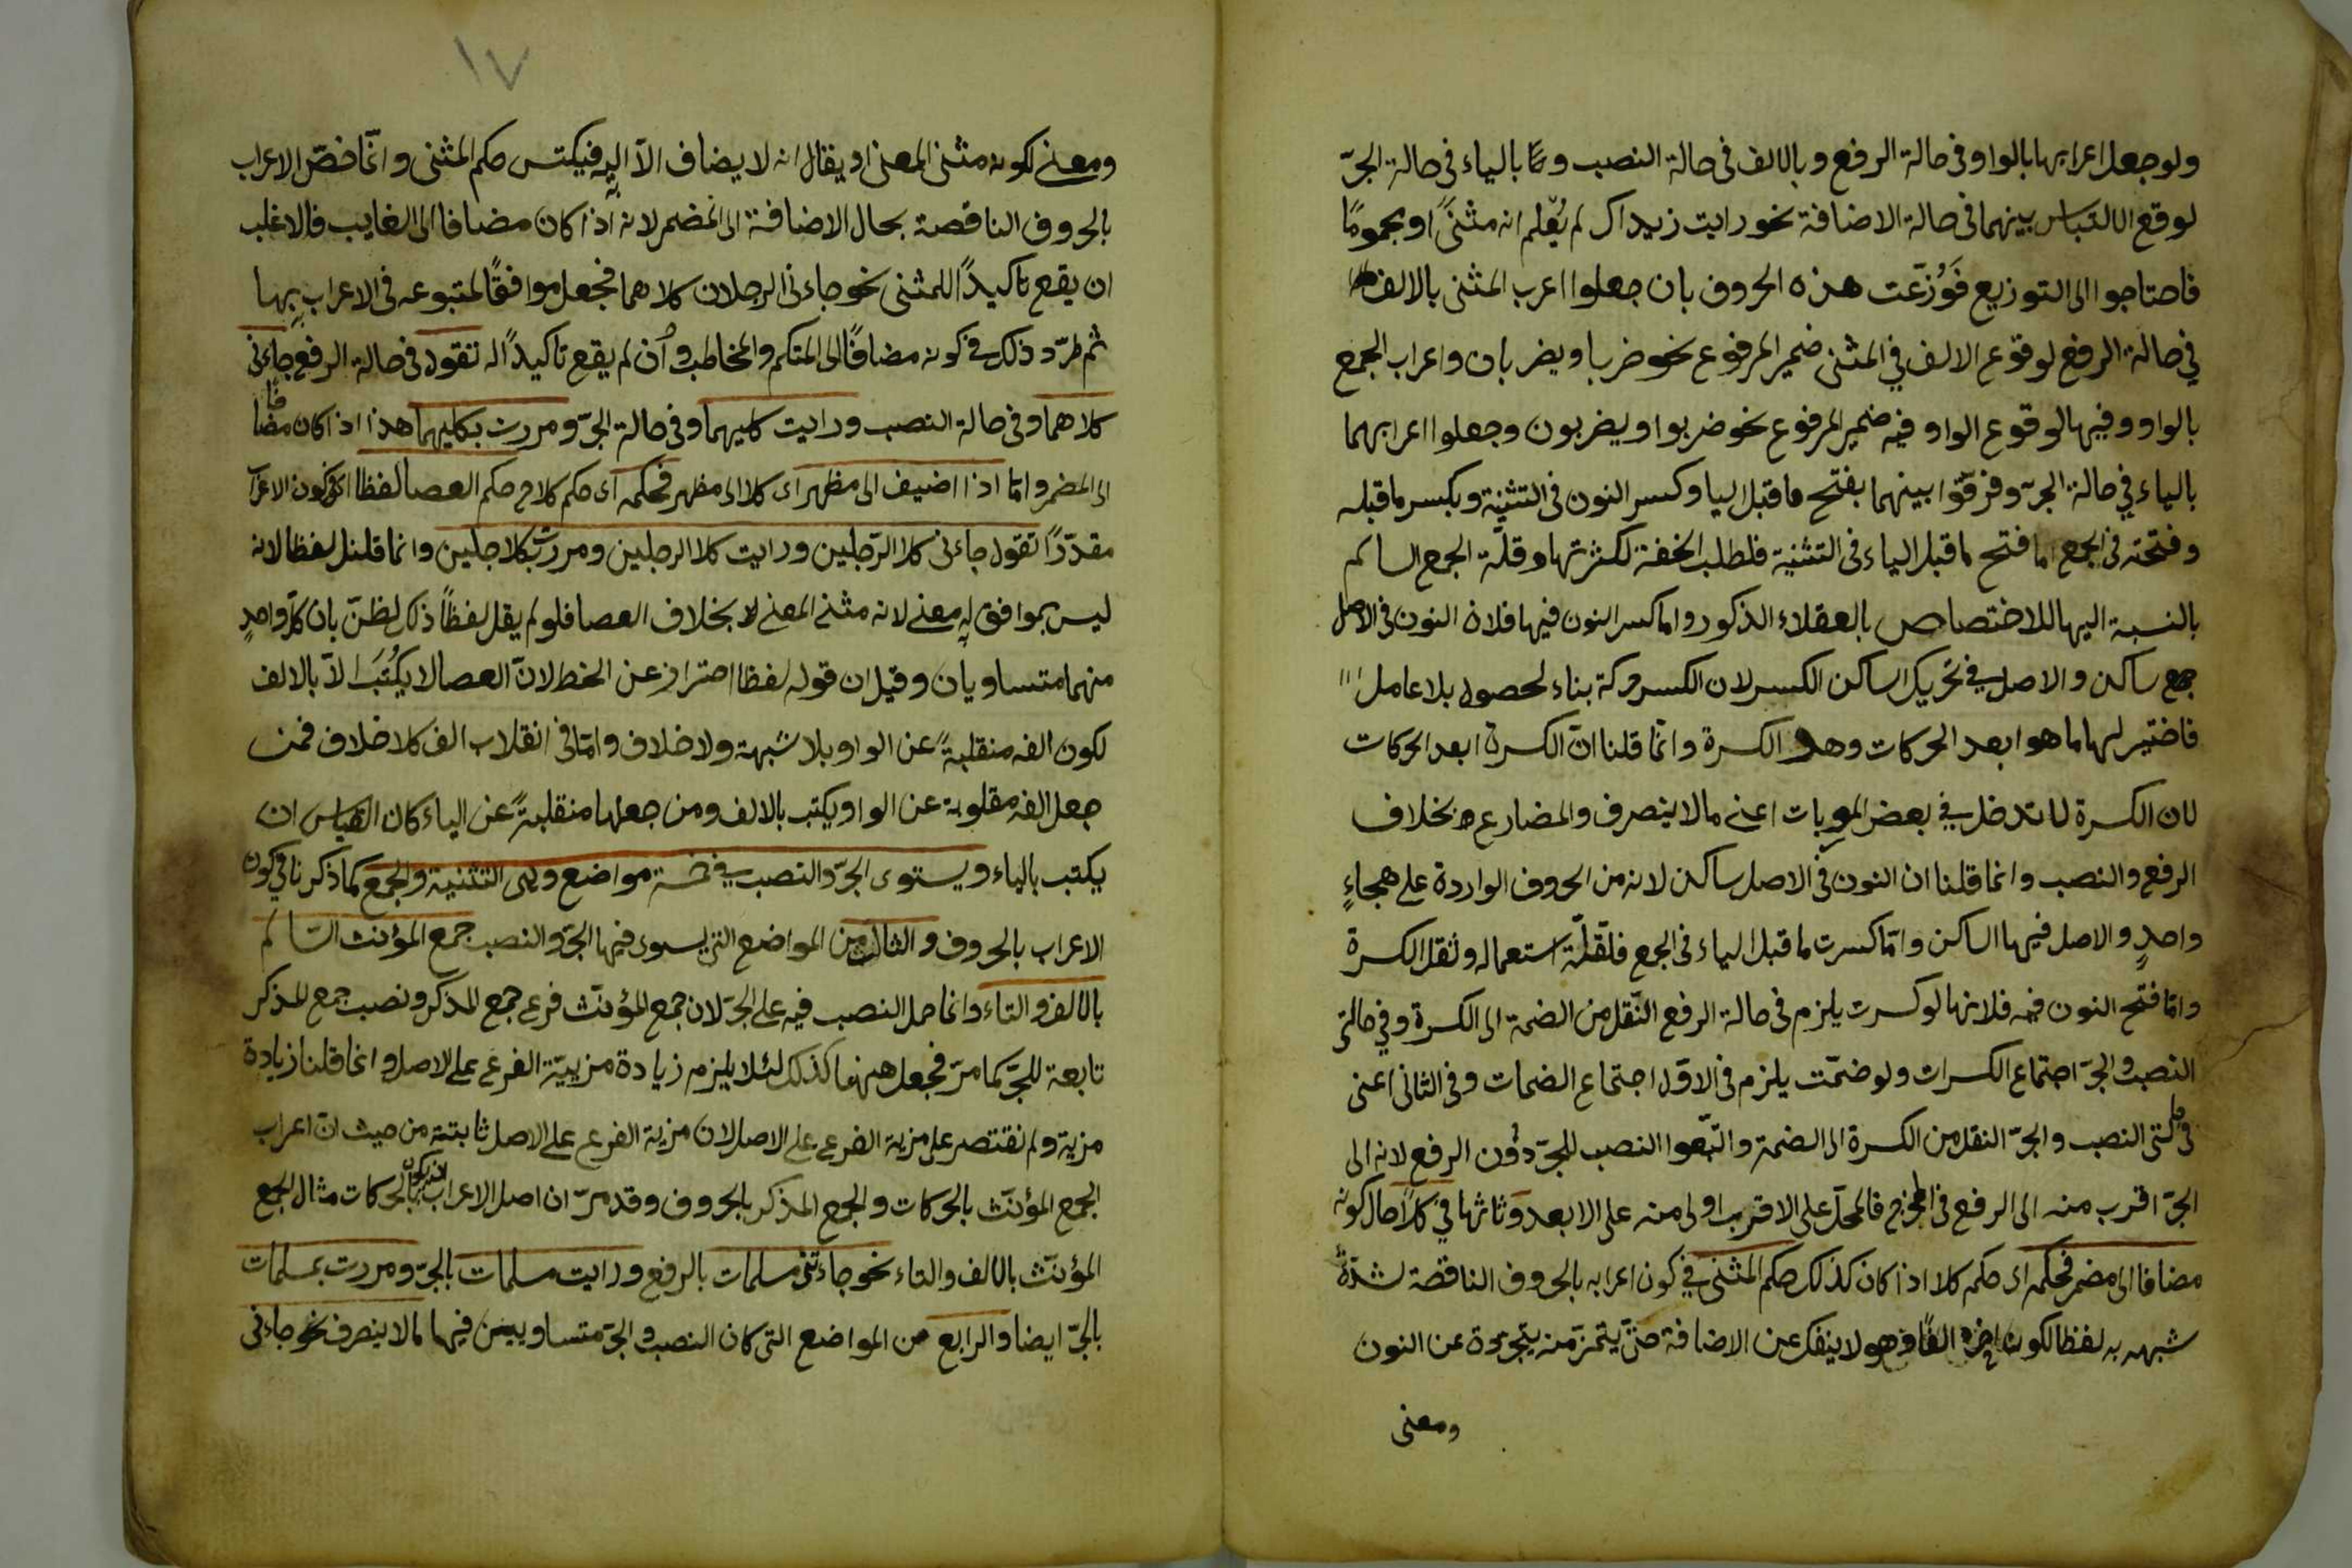 ولو جعل اعرابهما بالواو في حالة الرفع وبالالف في حالة النصب و بالياء في حالة الجرّ
لوقع الالتباس بينهما في حالة الاضافة نحو رايت زيداك لم يُعْلم انه مثنىً او مجموعًا
فاحتاجوا الى التوزيع فَوُزّعَت هذه الحروف بان جعلوا اعرب المثنى بالالف
في حالة الرفع لوقوع الالف في المثنى ضمير المرفوع نحو ضربا ويضربان واعراب الجمع
بالواو وفيها لوقوع الواو فيه ضمير المرفوع نحو ضربوا ويضربون وجعلوا اعرابهما
بالياء في حالة الجرّ وفرّقوا بينهما بفتح ما قبل اليا وكسر النون في التثنية وبكسر ما قبله
وفتحته في الجمع اما فتح ما قبل الياء في التثنية فلطلب الخفة لكثرتها وقلّة الجمع السالم
بالنسبة اليها للاختصاص بالعقلاء الذكور واما كسر النون فيها فلان النون في الاصل
جمع ساكن والاصل في تحريك الساكن الكسر لان الكسر حركة بناء لحصول بلا عامل
فاختير لها ما هو ابعد الحركات وهو الكسرة وانّما قلنا انّ الكسرة ابعد الحركات
لان الكسرة لا تدخل في بعض المعربات اعني ما لا ينصرف والمضارع بخلاف
الرفع والنصب وانما قلنا ان النون في الاصل ساكن لانه من الحروف الواردة على هجاءٍ
واحدٍ والاصل فيها الساكن وامّا كسرت ما قبل الياء في الجمع فلقلّة استعماله وثقل الكسرة
وامّا فتح النون فيه فلانها لو كسرت يلزم في حالة الرفع النّقل من الضمة الى الكسرة وفي حالتى
النصب والجرّ اجتماع الكسرات ولو ضمّت يلزم في الاوّل اجتماع الضمات وفي الثانى اعنى
في حالتى النصب والجرّ النقل من الكسرة الى الضمة واتّبعوا النصب للجرّ دون الرفع لانه الى
الجرّ اقرب منه الى الرفع في المخرج فالحمل على الاقرب اولى منه على الابعد وثالثها في كلا حال كونه
مضافا الى مضمر فحكمه اى حكم كلا اذا كان كذلك حكم المثنى في كون اعرابه بالحروف الناقصة لشدّة
شبهه به لفظا لكون اخره الفًا وهو لا ينفك عن الاضافة حتى يتميّز منه يتجرّدة عن النون
ومعنى
١٧
ومعنى لكونه مثنى المعنى او يقال انه لا يضاف الاّ اليه فيكتسى حكم المثنى وانّما خصّ الاعراب
بالحروف الناقصة بحال الاضافة الى المضمر لانه اذا كان مضافا الى الغايب فالاغلب
ان يقع تاكيدًا للمثنى نحو جاءنى الرجلان كلاهما فجعل موافقًا لمتبوعه في الاعراب بها
ثم طرّد ذلك في كونه مضافًا الى المتكلم والمخاطب وان لم يقع تاكيدًا له تقول في حالة الرفع جاءنى
كلاهما وفي حالة النصب ورايت كليهما وفي حالة الجرّ ومررت بكليهما هذا اذا كان مضافا
الى المضمر وامّا اذا اضيف الى مظهر اى كلا الى مظهر فحكمه اى حكم كلا ح حكم العصا لفظا اى في كون الاعراب
مقدّرًا تقول جاءنى كلا الرّجلين ورايت كلا الرجلين ومررت بكلا جلين وانما قلنا لفظا لانه
ليس بموافق له معنى لانه مثنى المعنى لا بخلاف العصا فلو لم يقل لفظًا ذلك لظنّ بان كلّ واحدٍ
منهما متساويان وقيل ان قوله لفظا احتراز عن الخط لانّ العصا لا يكُتَبُ الاّ بالالف
لكون الفه منقلبةً عن الواو بلا شبهة ولا خلاف وامّا في انقلاب الف كلا خلاف فمن
جعل الفه مقلوبة عن الواو يكتب بالالف ومن جعلها منقلبةً عن الياء كان القياس ان
يكتب بالياء ويستوى الجرّ والنصب في خمسة مواضع وهى التثنية والجمع كما ذكرنا في كون
الاعراب بالحروف والثالث من المواضع التى يسوى فيها الجرّ والنصب جمع المؤنث السّالم
بالالف والتاء وانما حمل النصب فيه على الجرّ لان جمع المؤنّث فرع جمع المذكر ونصب جمع المذكر
تابعة للجرّ كما مرّ فجعل ههنا كذلك لئلا يلزم زيادة مزيّة الفرع على الاصل وانما قلنا زيادة
مزية ولم نقتصر على مزية الفرع على الاصل لان مزية الفرع على الاصل ثابتة من حيث ان اعراب
الجمع المؤنّث بالحركات والجمع المذكر بالحروف وقد مرّ ان اصل الاعراب ان يكون بالحركات مثال الجمع
المؤنّث بالالف والتاء نحو جاءتنى مسلمات بالرفع ورايت مسلمات بالجرّ ومررت بمسلمات
بالجرّ ايضا والرابع من المواضع التى كان النصب والجرّ متساويين فيها ما لا ينصرف نحو جاءنى